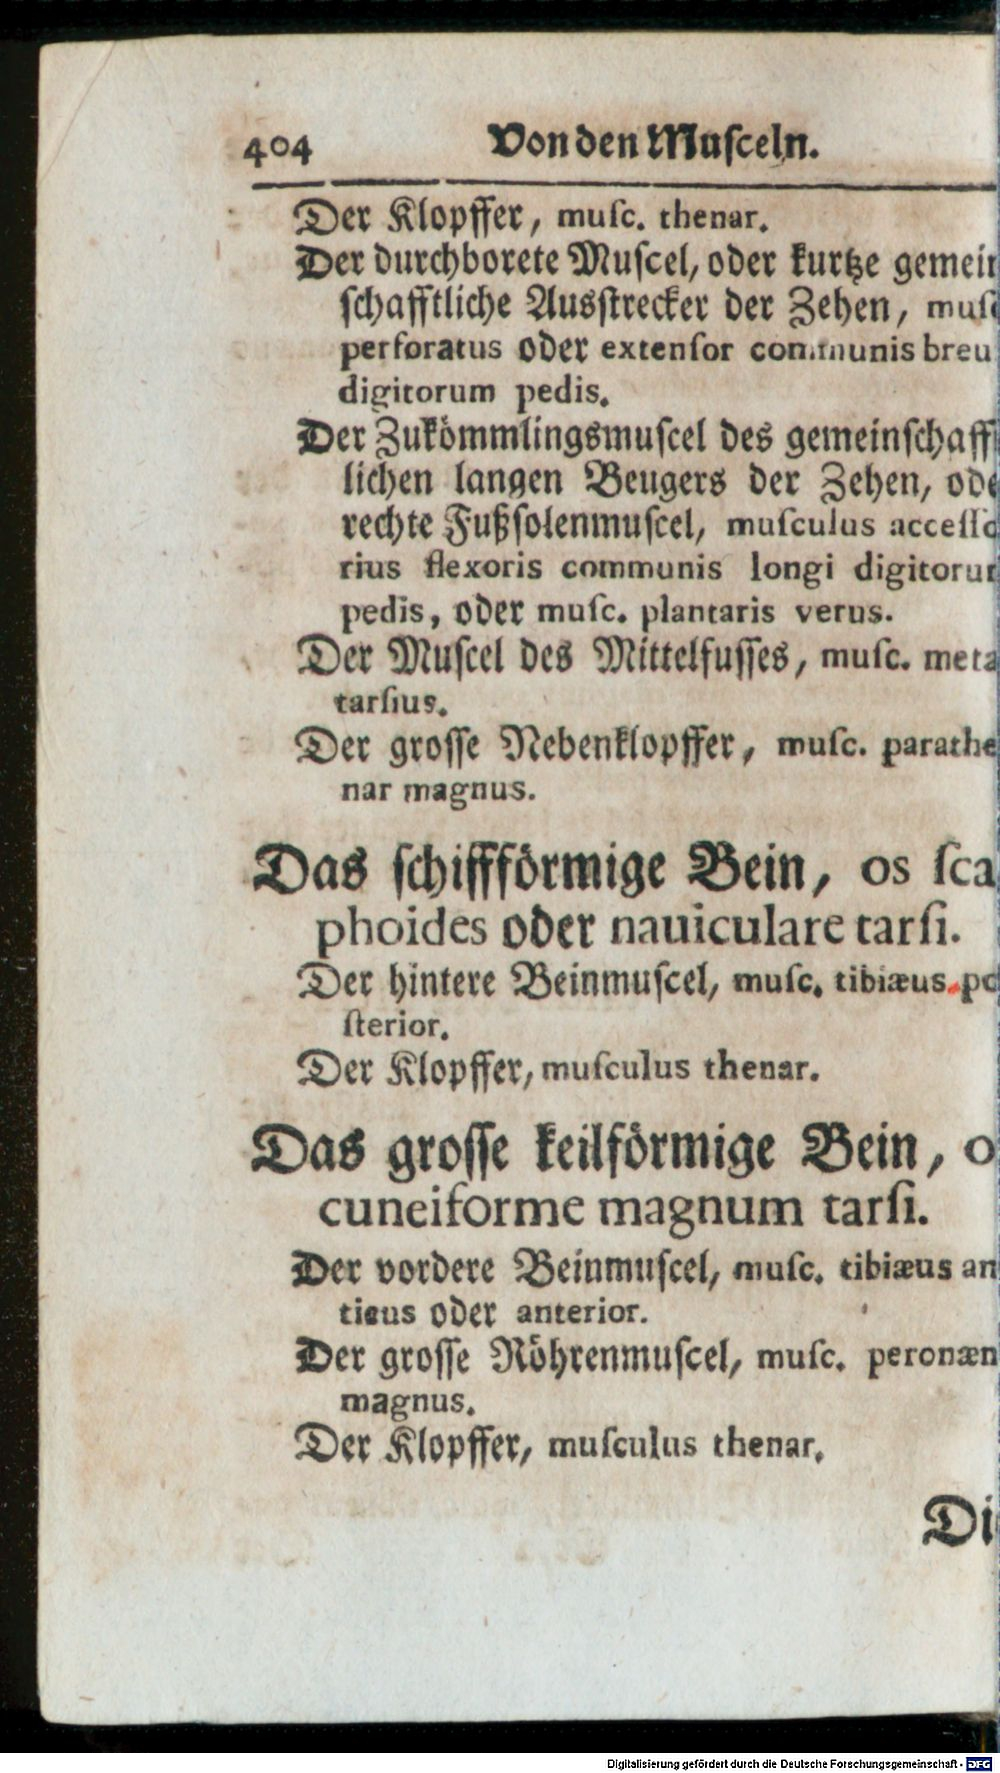 404 Von den Muſceln.
Der Klopffer, muſc. thenar.
Der durchborete Muſcel, oder kurtze gemein
ſchafftliche Ausſtrecker der Zehen, muſc
perforatus oder extenſor communis breu
digitorum pedis.
Der Zukömmlingsmuſcel des gemeinſchafft
lichen langen Beugers der Zehen, ode
rechte Fußſolenmuſcel, muſculus acceſſo
rius flexoris communis longi digitorum
pedis, oder muſc. plantaris verus.
Der Muſcel des Mittelfuſſes, muſc. meta
tarſius.
Der groſſe Nebenklopffer, muſc. parathe
nar magnus.
Das ſchiffförmige Bein, os ſca
phoides oder nauiculare tarſi.
Der hintere Beinmuſcel, muſc. tibiæus po
ſterior.
Der Klopffer, muſculus thenar.
Das groſſe keilförmige Bein, o
cuneiforme magnum tarſi.
Der vordere Beinmuſcel, muſc. tibiæus an
ticus oder anterior.
Der groſſe Röhrenmuſcel, muſc. peronæu
magnus.
Der Klopffer, muſculus thenar.
Di
Digitalisierung gefördert durch die Deutsche Forschungsgemeinschaft - DFG